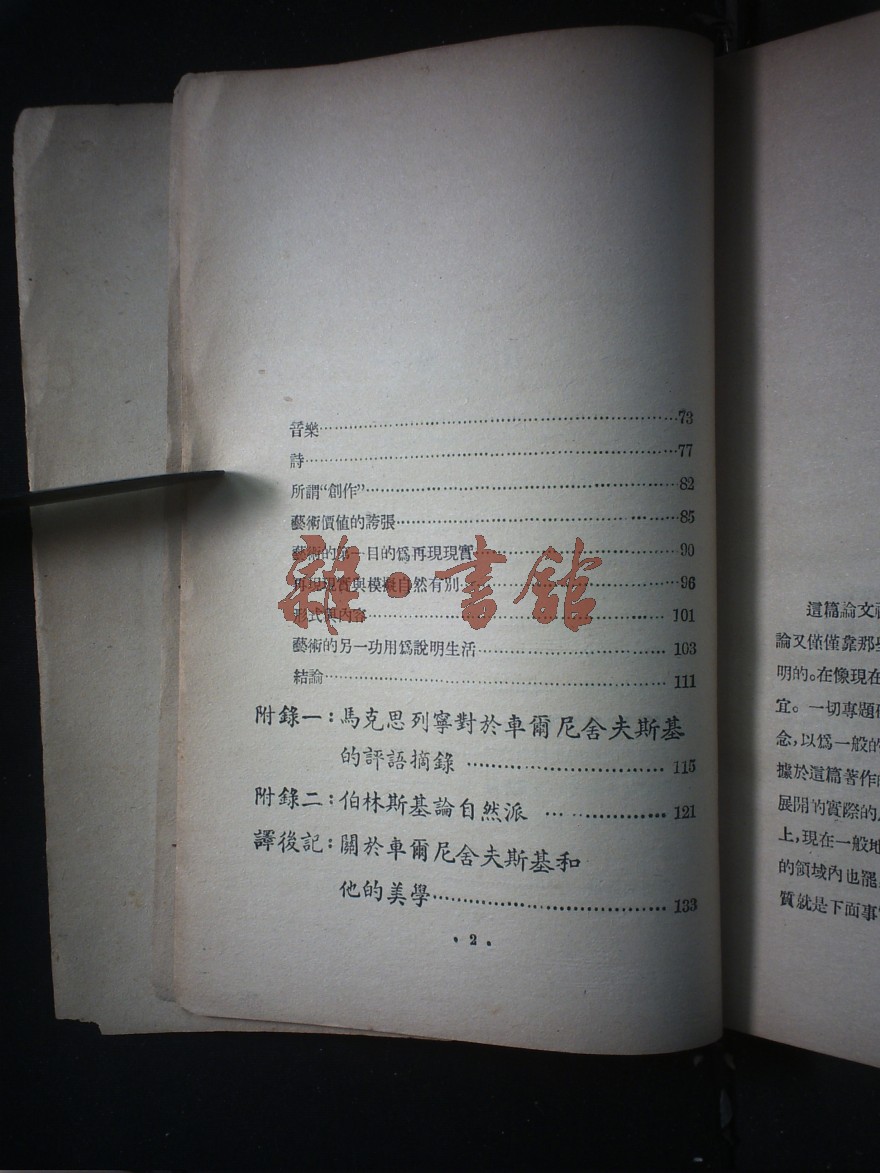 音樂…………73
詩…………77
所謂“創作”…………82
藝術價值的誇張…………85
藝術的第一目的爲再現現實…………90
再現現實與模擬自然有別…………96
形式與內容…………101
藝術的另一功用爲說明生活…………103
結論…………111
附錄一:馬克思列寧對於車爾尼舍夫斯基
的評語摘錄…………115
附錄二:伯林斯基論自然派…………121
譯後記:關於車爾尼舍夫斯基和
他的美學…………133
·2·
雜·書館
這篇論文
論又僅僅靠那
明的。在像現在
宜。一切專題
念,以爲一般的
據於這篇著作
展開的實際的
上,現在一般
的領域內也罷
質就是下面事